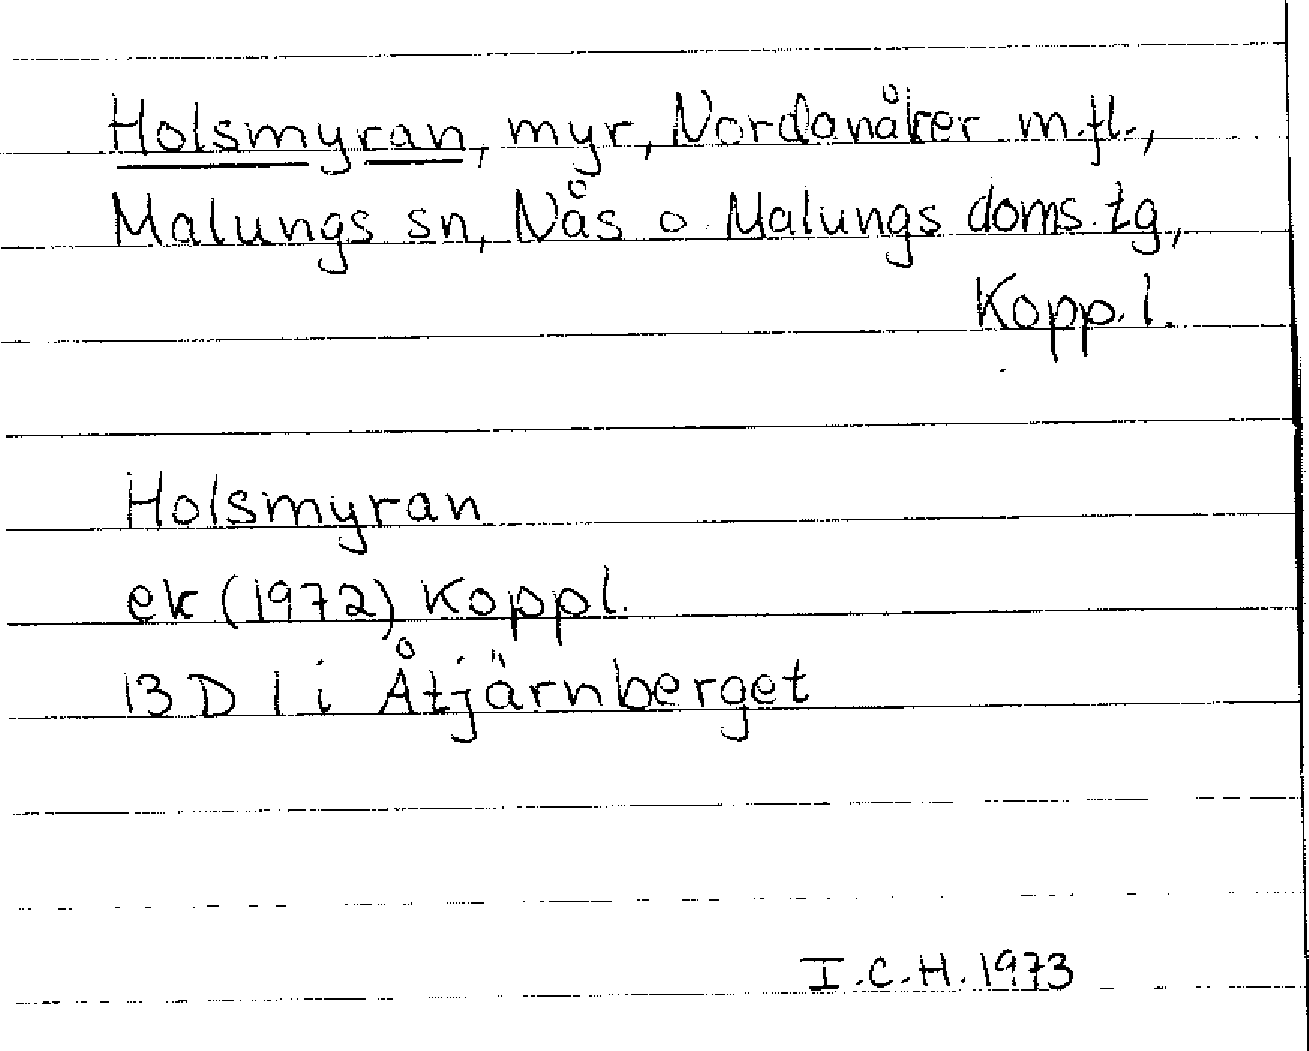 Holsmyran, myr, Nordanåker m.fl.,
Malungs sn, Nås o Malungs doms.tg,
Kopp. l.
Holsmyran
ek (1972) Koppl.
13 D 1 i Åtjärnberget
I.C.H. 1973